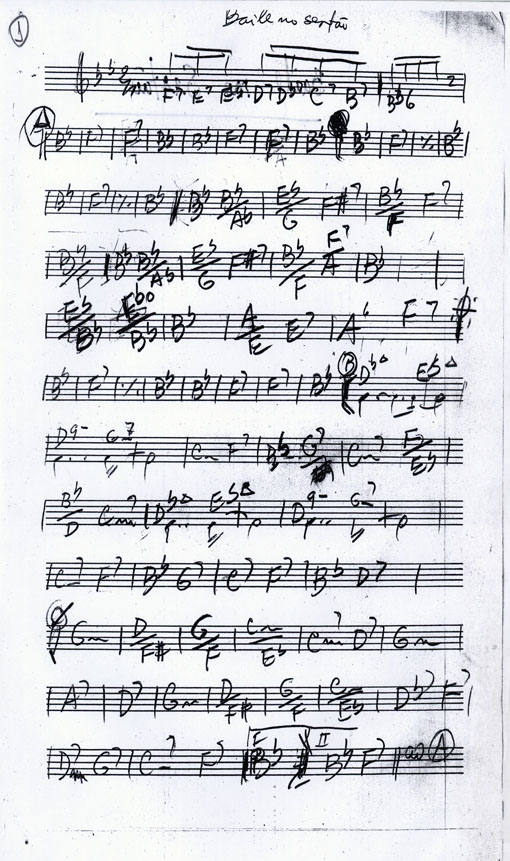 1
Baile no sertão
F7 E7 D7 C7 B7 B♭6 2
A B♭ F7 B♭ B♭ F7 F7 B♭ B♭ F7 % B♭
B♭ F7 % B♭ B♭ B♭/A♭ E♭/G F#7 B♭/F F7
B♭/F B♭ B♭/A♭ E♭/G F#7 B♭/F E7 A B♭
E♭/B♭ E♭o/B♭ B♭ A/E E7 A6 F7
B♭ F7 % B♭ B♭ F7 F7 B♭ B D♭Δ E♭Δ
D9- G7 Cm F7 B♭ G7 Cm7 F7/E♭
B♭/D Cm7 D♭Δ E♭Δ D9- G-7
C-7 F7 B♭ G7 C7 F7 B♭ D7
Gm D/F# G/F Cm/E♭ Cm7 D7 Gm
A7 D7 Gm D/F# G/F Cm/E♭ D♭7 F7
G7 C-7 F7 B♭ II B♭ F7 ao A